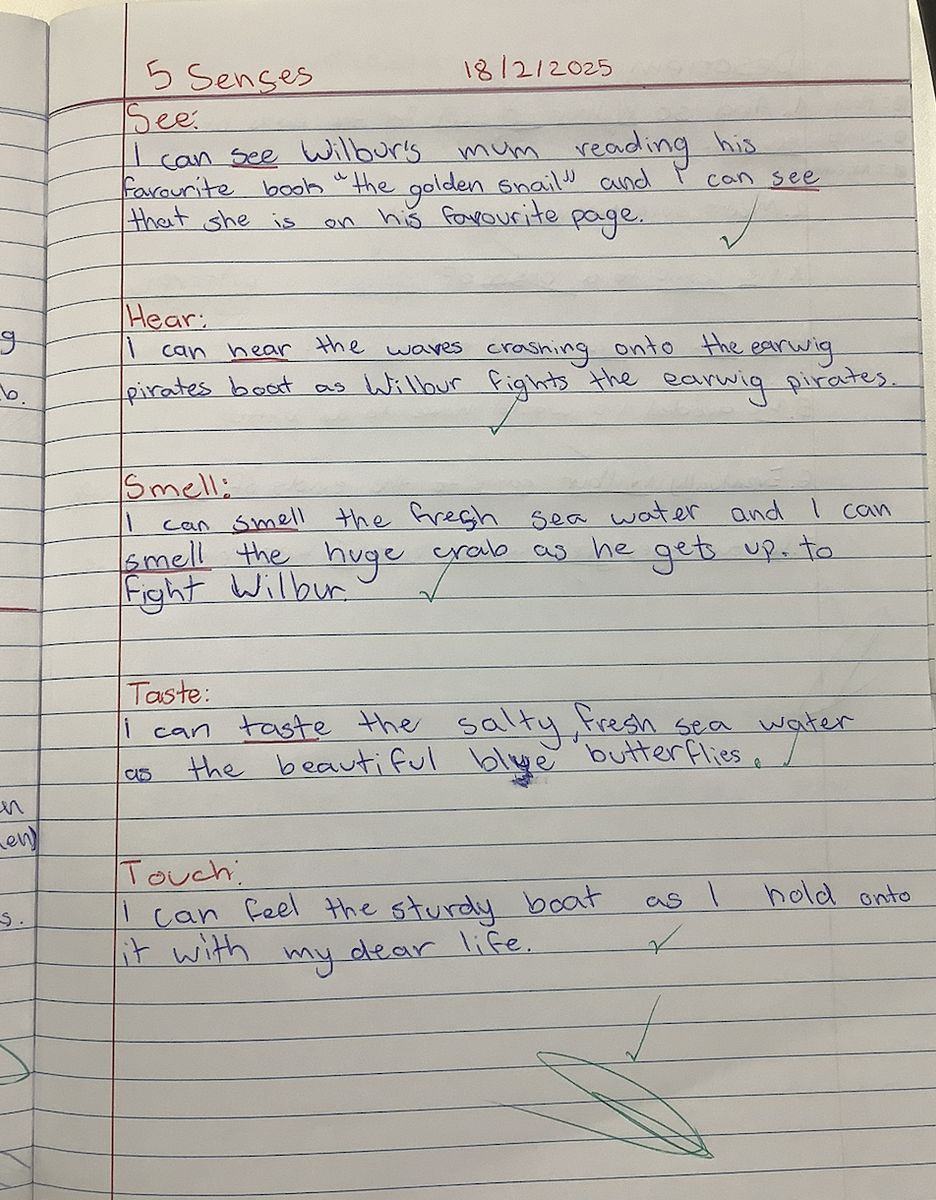 5 Senses 18/2/2025
See:
I can see Wilbur's mum reading his
favourite book "the golden snail" and I can see
that she is on his favourite page.
Hear:
I can hear the waves crashing onto the earwig
pirates boat as Wilbur fights the earwig pirates.
Smell:
I can smell the fresh sea water and I can
smell the huge crab as he gets up. to
fight Wilbur.
Taste:
I can taste the salty, fresh sea water
as the beautiful blue butterflies.
Touch:
I can feel the sturdy boat as I hold onto
it with my dear life.
g
b.
n
en)
s.